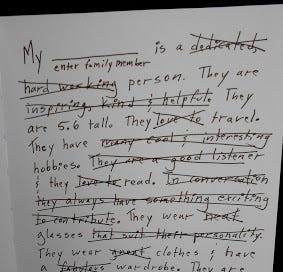 My ____________ is a dedicated,
enter family member
hard working person. They are
inspiring, kind & helpful. They
are 5.6 tall. They love to travel.
They have many cool & interesting
hobbies. They are a good listener
& they love to read. In conversation
they always have something exciting
to contribute. They wear neat
glasses that suit their personality.
They wear great clothes & have
a fabulous wardrobe. They are